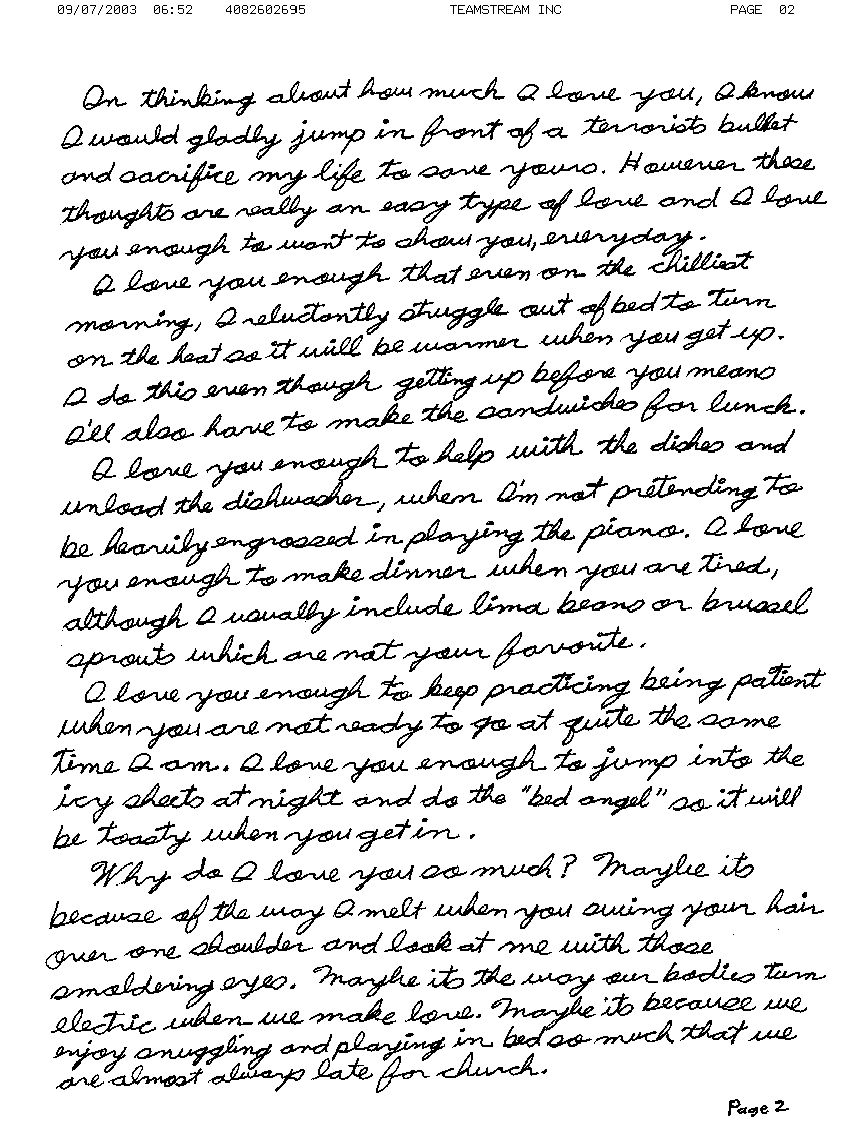 09/07/2003 06:52 4082602695 TEAMSTREAM INC PAGE 02
On thinking about how much I love you, I know
I would gladly jump in front of a terrorists bullet
and sacrifice my life to save yours. However these
thoughts are really an easy type of love and I love
you enough to want to show you, everyday.
I love you enough that even on the chilliest
morning, I reluctantly struggle out of bed to turn
on the heat so it will be warmer when you get up.
I do this even though getting up before you means
I'll also have to make the sandwiches for lunch.
I love you enough to help with the dishes and
unload the dishwasher, when I'm not pretending to
be heavily engrossed in playing the piano. I love
you enough to make dinner when you are tired,
although I usually include lima beans or brussel
sprouts which are not your favorite.
I love you enough to keep practicing being patient
when you are not ready to go at quite the same
time I am. I love you enough to jump into the
icy sheets at night and do the "bed angel" so it will
be toasty when you get in.
Why do I love you so much? Maybe its
because of the way I melt when you swing your hair
over one shoulder and look at me with those
smoldering eyes. Maybe its the way our bodies turn
electric when we make love. Maybe its because we
enjoy snuggling and playing in bed so much that we
are almost always late for church.
Page 2